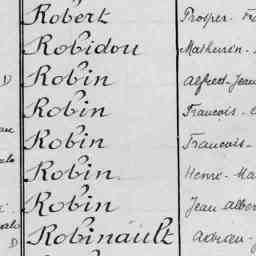 Robert Prosper-
Robidou Mathurin-
D Robin Alfred-Jean
Robin François-
Robin François-
Robin Henri-Ma
Robin Jean Alber
D Robinault Adrien-